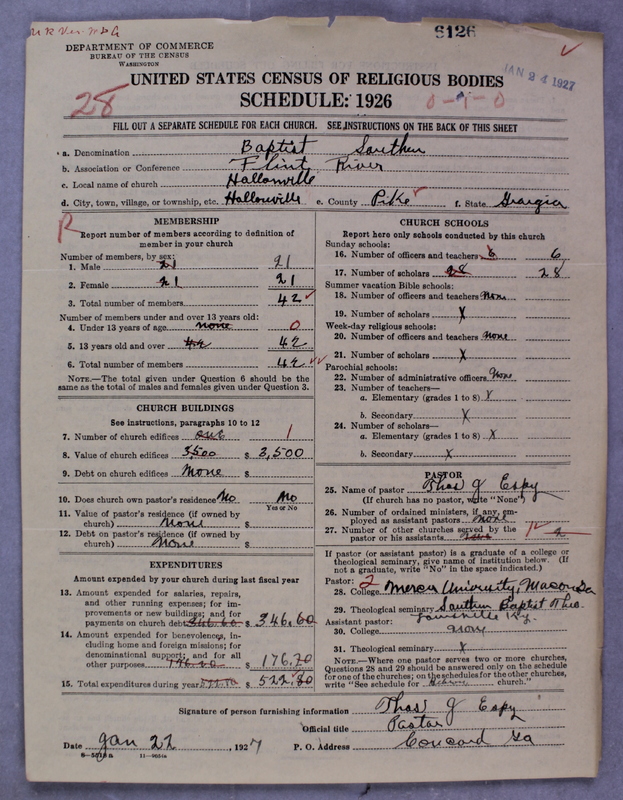 6126
DEPARTMENT OF COMMERCE
BUREAU OF THE CENSUS
WASHINGTON
JAN 24 1927
UNITED STATES CENSUS OF RELIGIOUS BODIES
28
SCHEDULE: 1926
0-1-0
FILL OUT A SEPARATE SCHEDULE FOR EACH CHURCH. SEE INSTRUCTIONS ON THE BACK OF THIS SHEET
a. Denomination Baptist Southern
b. Association or Conference Flint River
c. Local name of church Hollonville
d. City, town, village, or township, etc. Hollonville e. County Pike f. State Georgia
R
MEMBERSHIP
Report number of members according to definition of
member in your church
Number of members, by sex:
1. Male 21 21
2. Female 21 21
3. Total number of members 42
Number of members under and over 13 years old:
4. Under 13 years of age none 0
5. 13 years old and over 42 42
6. Total number of members 42
NOTE.—The total given under Question 6 should be the
same as the total of males and females given under Question 3.
CHURCH BUILDINGS
See instructions, paragraphs 10 to 12
7. Number of church edifices one 1
8. Value of church edifices 3,500 $ 3,500
9. Debt on church edifices None $
10. Does church own pastor's residence No No
Yes or No
11. Value of pastor's residence (if owned by
church) None $
12. Debt on pastor's residence (if owned by
church) None $
EXPENDITURES
Amount expended by your church during last fiscal year
13. Amount expended for salaries, repairs,
and other running expenses; for im-
provements or new buildings; and for
payments on church debt 346.60 $ 346.60
14. Amount expended for benevolences, in-
cluding home and foreign missions; for
denominational support; and for all
other purposes 176.20 $ 176.20
15. Total expenditures during year $ 522.80
CHURCH SCHOOLS
Report here only schools conducted by this church
Sunday schools:
16. Number of officers and teachers 6 6
17. Number of scholars 28 28
Summer vacation Bible schools:
18. Number of officers and teachers None
19. Number of scholars X
Week-day religious schools:
20. Number of officers and teachers None
21. Number of scholars X
Parochial schools:
22. Number of administrative officers None
23. Number of teachers—
a. Elementary (grades 1 to 8) X
b. Secondary X
24. Number of scholars—
a. Elementary (grades 1 to 8) X
b. Secondary X
PASTOR
25. Name of pastor Thos J Espy
(If church has no pastor, write "None")
26. Number of ordained ministers, if any, em-
ployed as assistant pastors None
27. Number of other churches served by the
pastor or his assistants
If pastor (or assistant pastor) is a graduate of a college or
theological seminary, give name of institution below. (If
not a graduate, write "No" in the space indicated.)
Pastor: 2
28. College Mercer University, Macon Ga
29. Theological seminary Southern Baptist Theo.
Assistant pastor: Louisville Ky.
30. College None
31. Theological seminary X
NOTE.—Where one pastor serves two or more churches,
Questions 28 and 29 should be answered only on the schedule
for one of the churches; on the schedules for the other churches,
write "See schedule for church."
Signature of person furnishing information Thos J Espy
Official title Pastor
Date Jan 22, 1927 P. O. Address Concord Ga
8-5519a 11-9551a